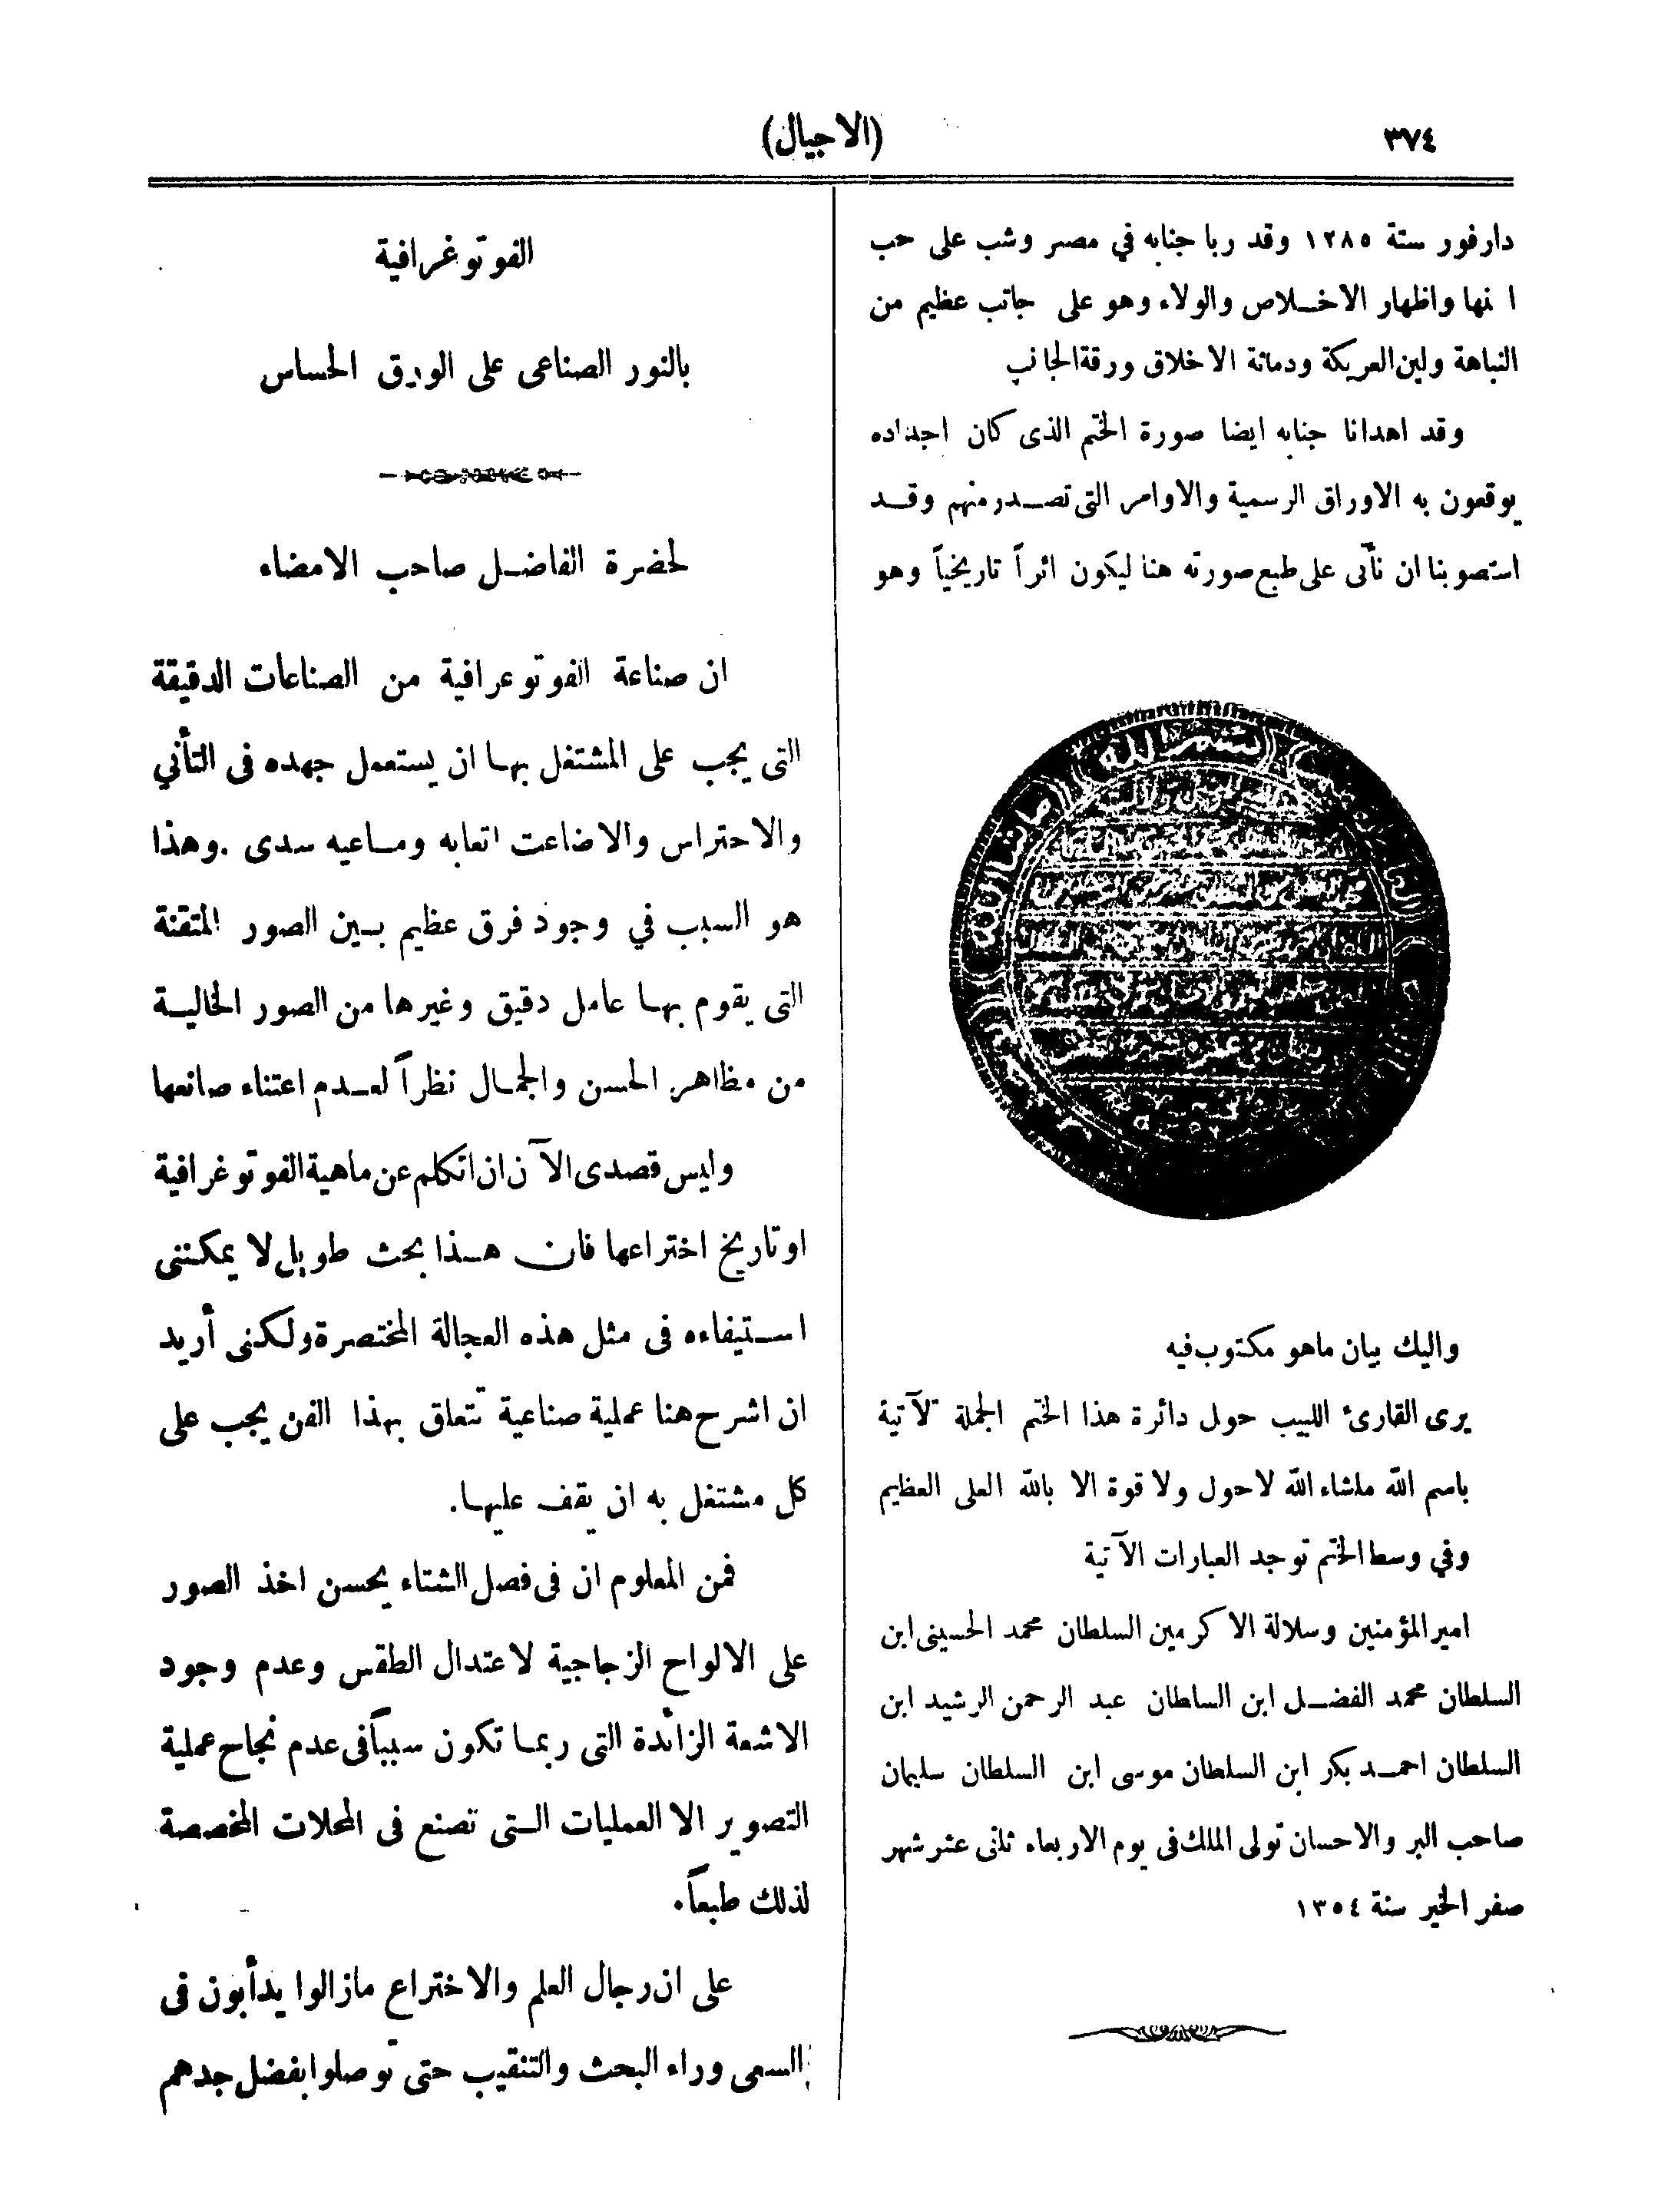 ٣٧٤
(الاجيال)
دارفور ستة ١٢٨٥ وقد ربا جنابه في مصر وشب على حب
ا نها واظهار الاخلاص والولاء وهو على جانب عظيم من
النباهة ولين العريكة ودماثة الاخلاق ورقة الجانب
وقد اهدانا جنابه ايضا صورة الختم الذى كان اجداده
يوقعون به الاوراق الرسمية والاوامر التى تصدر منهم وقد
استصوبنا ان نأتى على طبع صورته هنا ليكون اثراً تاريخياً وهو
واليك بيان ماهو مكتوب فيه
يرى القارئ اللبيب حول دائرة هذا الختم الجملة الآتية
باسم الله ماشاء الله لاحول ولا قوة الا بالله العلى العظيم
وفي وسط الختم توجد العبارات الآتية
امير المؤمنين وسلالة الاكرمين السلطان محمد الحسينى ابن
السلطان محمد الفضل ابن السلطان عبد الرحمن الرشيد ابن
السلطان احمد بكر ابن السلطان موسى ابن السلطان سليمان
صاحب البر والاحسان تولى الملك فى يوم الاربعاء ثانى عشر شهر
صفر الخير سنة ١٣٥٤
الفوتوغرافية
بالنور الصناعى على الورق الحساس
لحضرة الفاضل صاحب الامضاء
ان صناعة الفوتوعرافية من الصناعات الدقيقة
التى يجب على المشتغل بها ان يستعمل جهده فى التأني
والاحتراس والاضاعت اتعابه ومساعيه سدى . وهذا
هو السبب في وجود فرق عظيم بين الصور المتقنة
التى يقوم بها عامل دقيق وغيرها من الصور الخالية
من مظاهر الحسن والجمال نظراً لعدم اعتناء صانعها
وليس قصدى الآن ان اتكلم عن ماهية الفوتوغرافية
او تاريخ اختراعها فان هذا بحث طويل لا يمكننى
استيفاءه فى مثل هذه العجالة المختصرة ولكنى أريد
ان اشرح هنا عملية صناعية تتعلق بهذا الفن يجب على
كل مشتغل به ان يقف عليها.
فمن المعلوم ان فى فصل الشتاء يحسن اخذ الصور
على الالواح الزجاجية لاعتدال الطقس وعدم وجود
الاشعة الزائدة التى ربما تكون سبباً فى عدم نجاح عملية
التصوير الا العمليات التى تصنع فى المحلات المخصصة
لذلك طبعاً.
على ان رجال العلم والاختراع مازالوا يدأبون فى
السعى وراء البحث والتنقيب حتى توصلوا بفضل جدهم